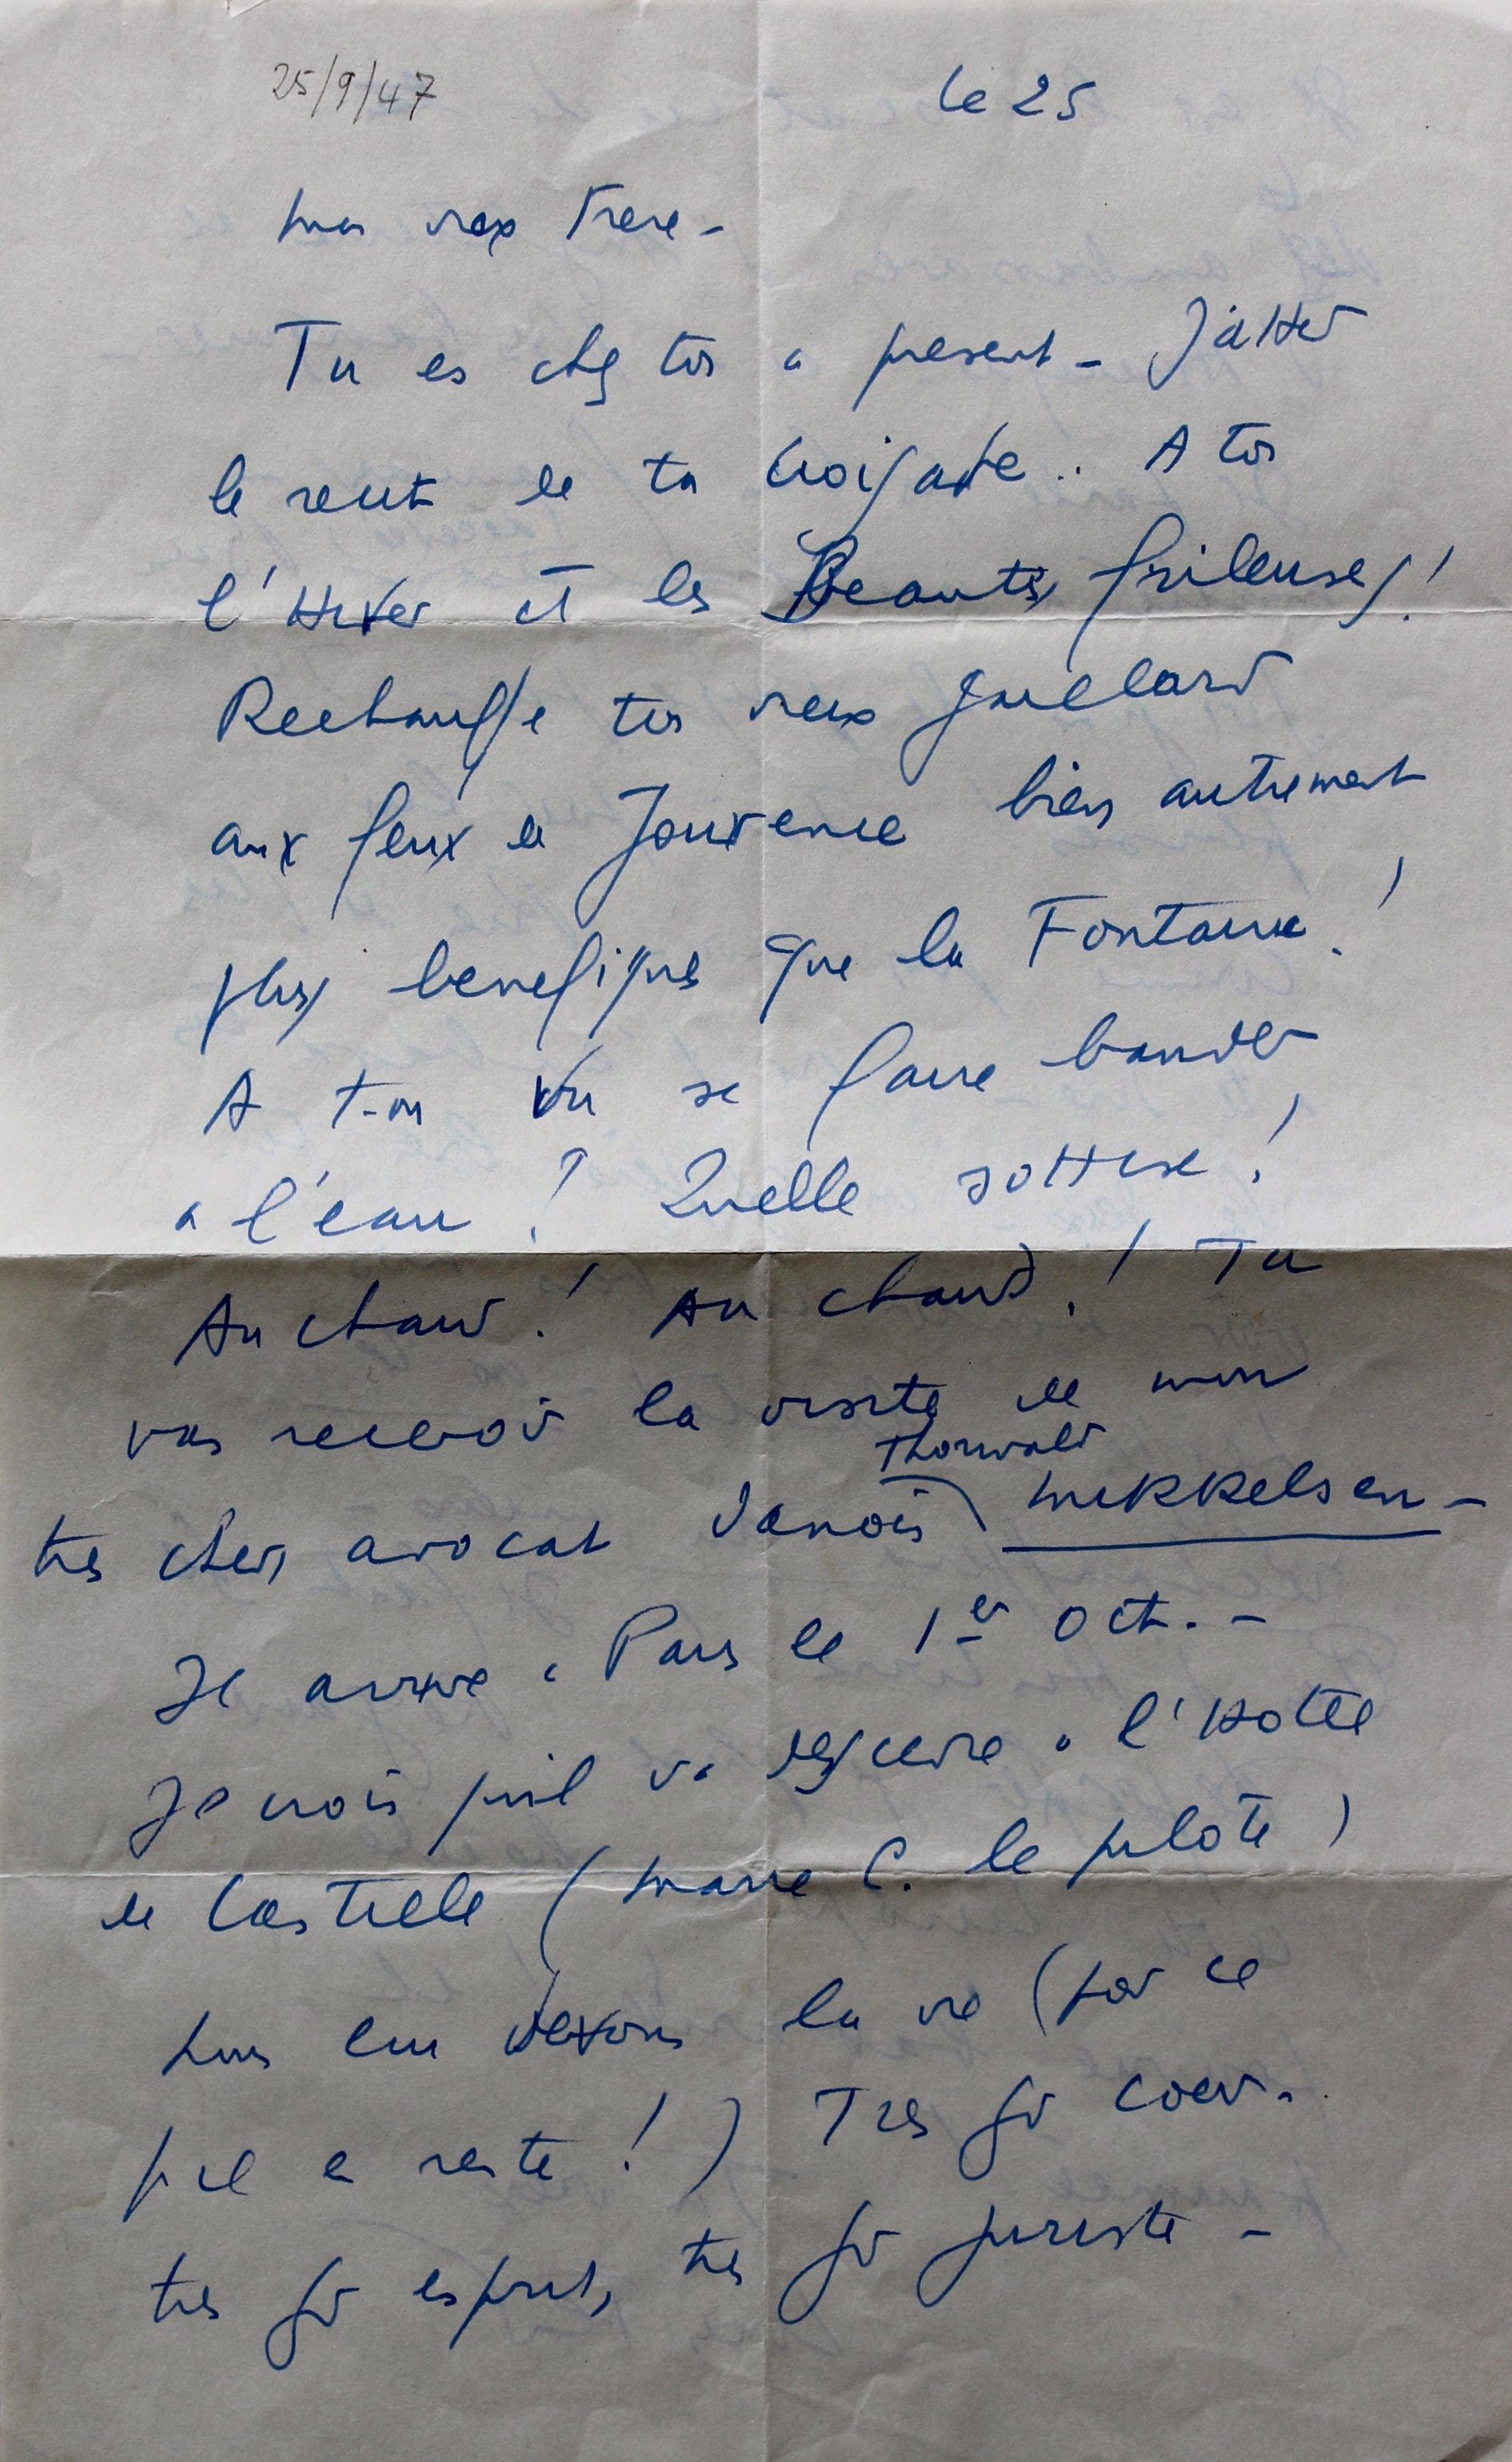 25/9/47
le 25
Mon vieux Frere -
Tu es chez toi a present - J'attes
le recit de ta croisade.. A toi
l'Hiver et les Beautés frileuses!
Rechauffe ton vieux gaillard
aux feux de Jouvence bien autrement
plus benefiques que la Fontaine!
A t-on vu se faire bander
a l'eau! Quelle sottise!
Au chaud! Au chaud! Tu
vas recevoir la visite de mon
Thorvald
tres cher avocat danois Mikkelsen -
Il arrive a Paris le 1er Oct. -
Je crois qu'il va descendre a l'Hotel
de Castille (Marie C. le pilote)
Nous lui devons la vie (par ce
qu'il en reste!) Tres gd coeur.
tres gd esprit, tres gd juriste -